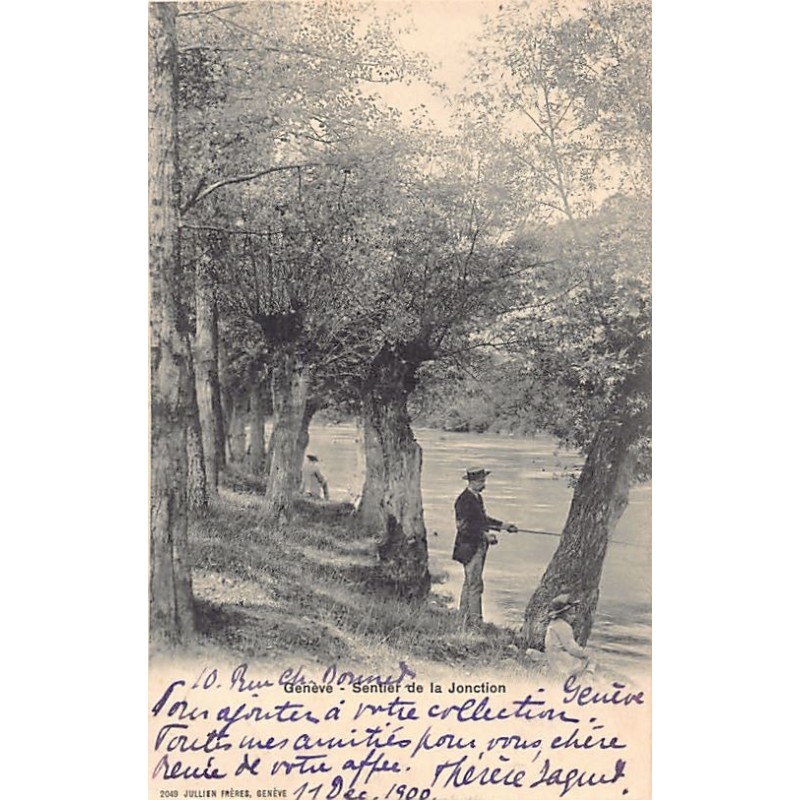 10. Rue Ch. Bonnet Genève
Genève - Sentier de la Jonction
Pour ajouter à votre collection.
Toutes mes amitiés pour vous, chère
Renée de votre affec. Thérèse
2049 JULLIEN FRÈRES, GENÈVE 11 Déc. 1900.